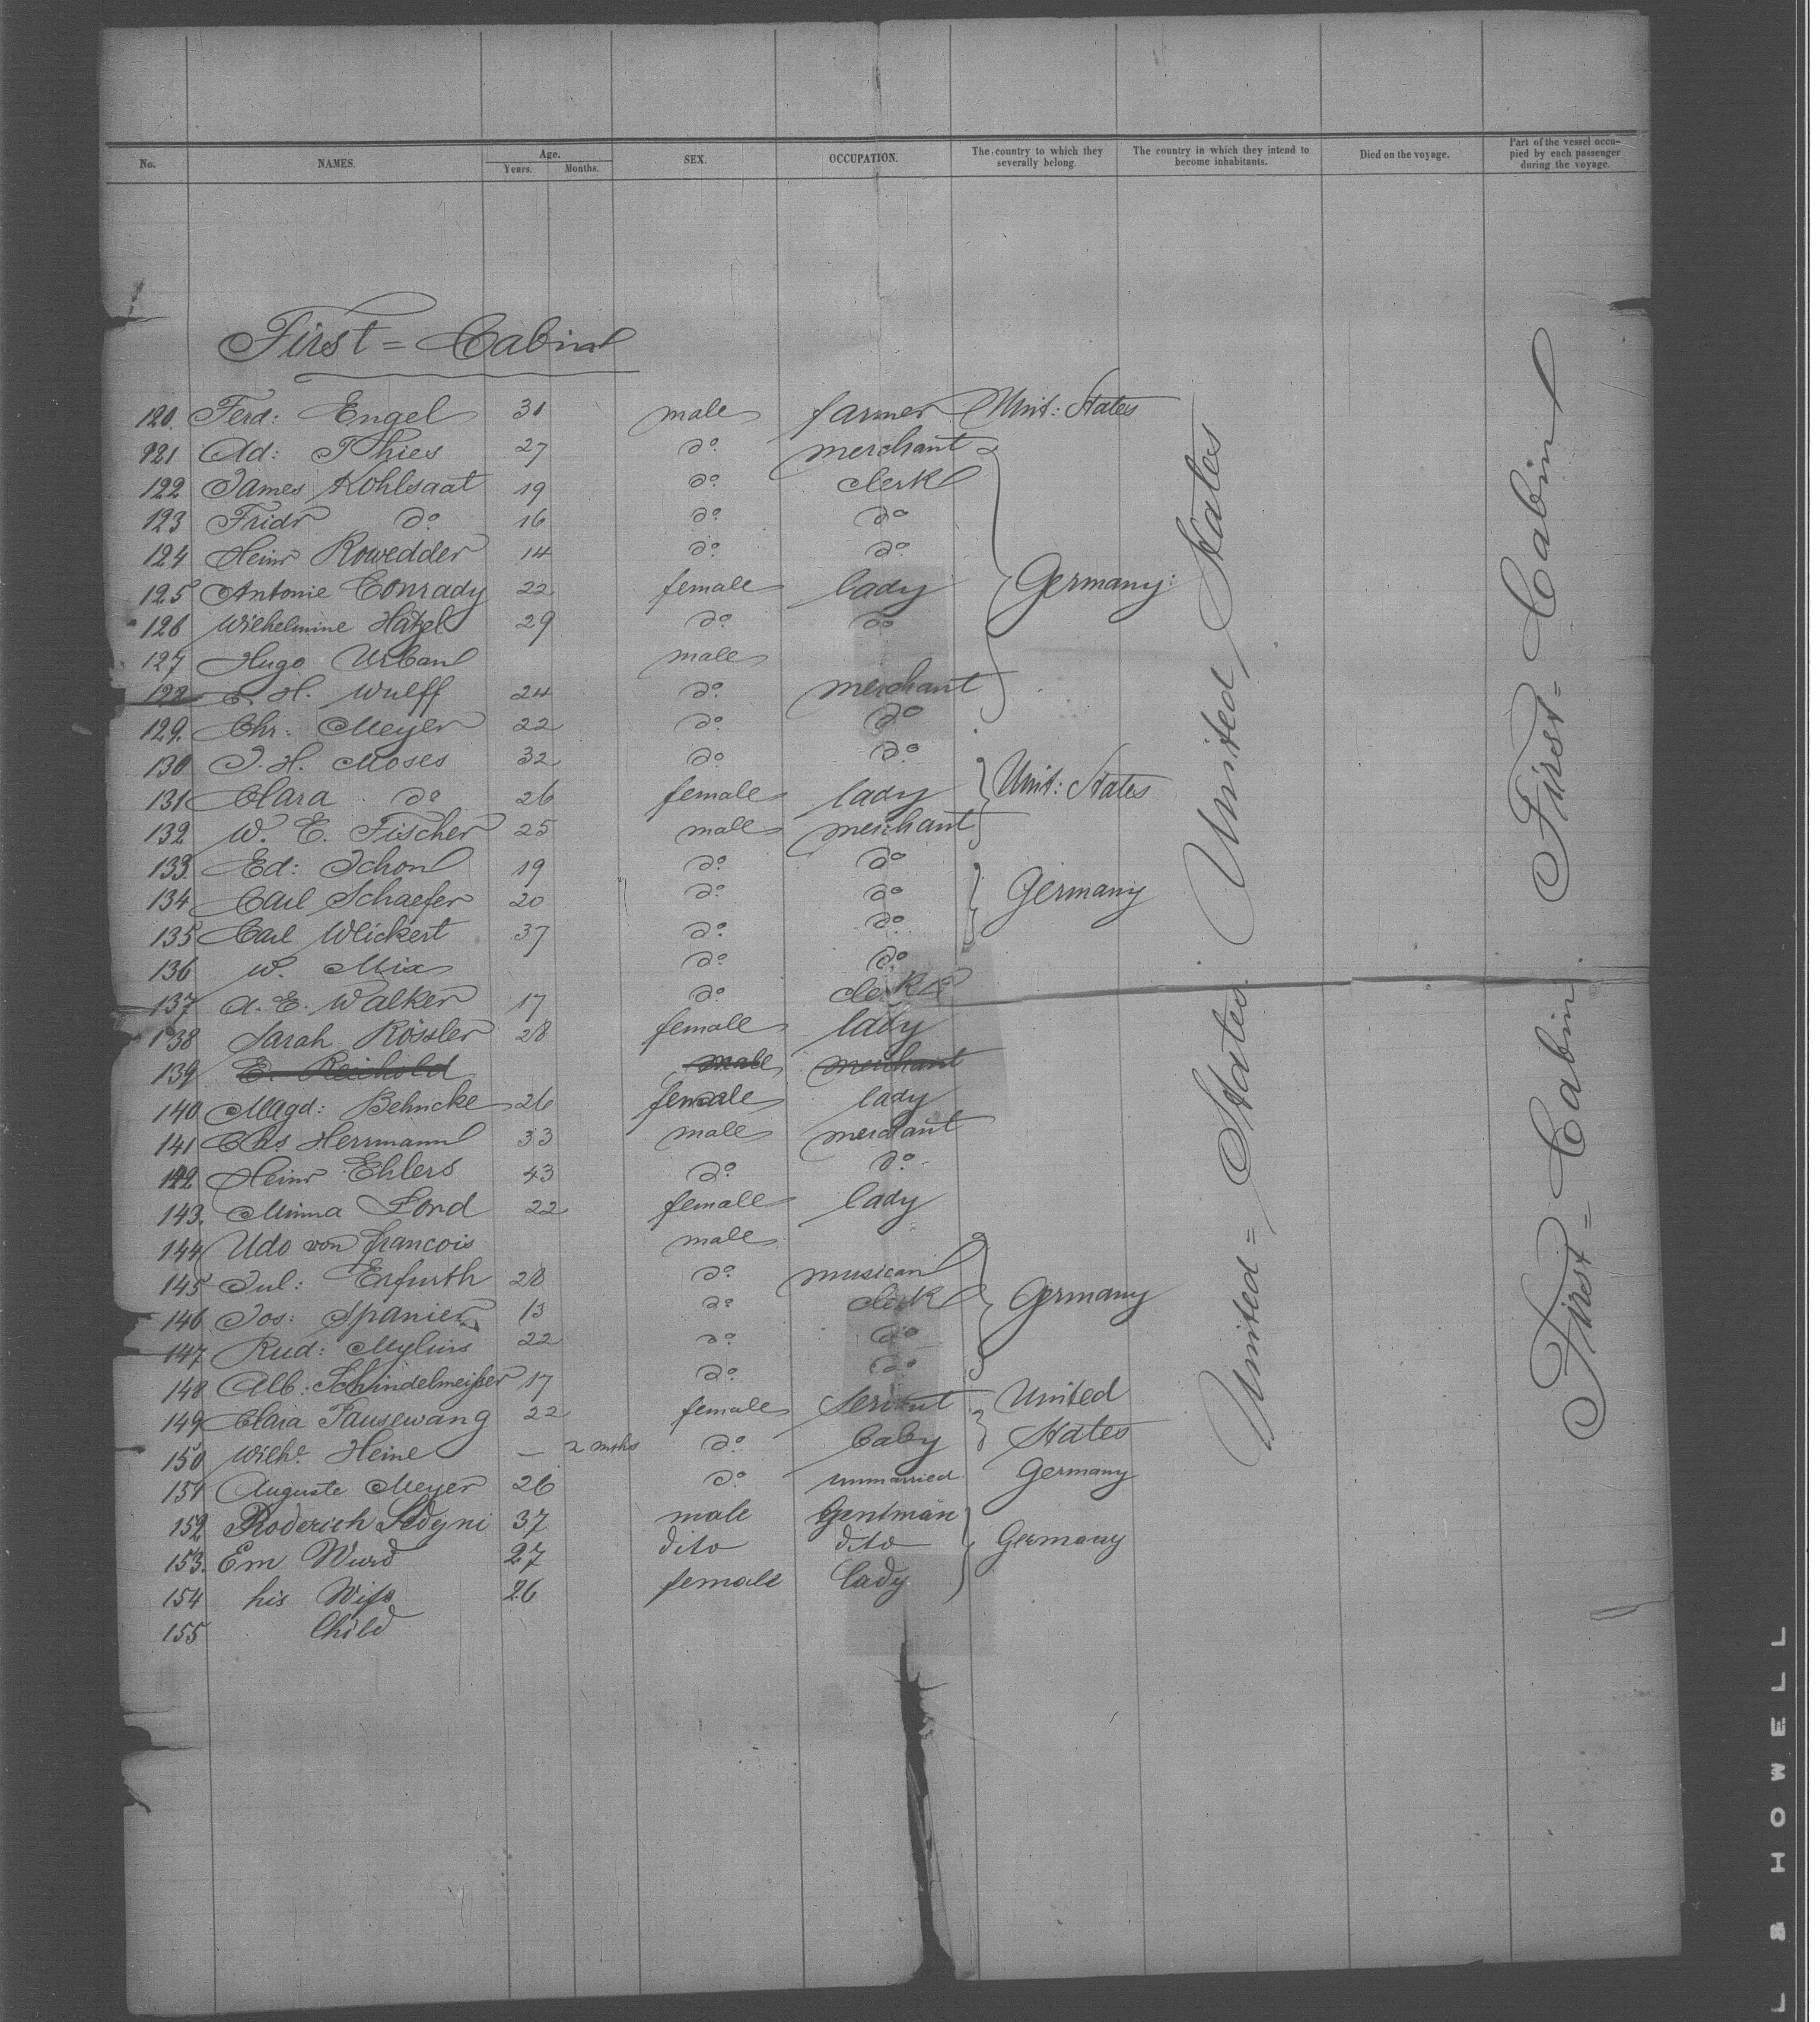 No. NAMES. Age. Years. Months. SEX. OCCUPATION. The country to which they severally belong. The country in which they intend to become inhabitants. Died on the voyage. Part of the vessel occupied by each passenger during the voyage.
First = Cabin
120. Ferd: Engel 31 male farmer Unit: States
121 Ad: Thies 27 do merchant
122 James Kohlsaat 19 do clerk
123 Fridr do 16 do do
124 Heinr Rowedder 14 do do
125 Antonie Conrady 22 female lady Germany:
126 Wilhelmine Hatzel 29 do do
127 Hugo Urban male
128 H. Wulff 24 do merchant
129. Chr: Meyer 22 do do
130 J. H. Moses 32 do do
131 Clara do 26 female lady Unit: States
132 W. E. Fischer 25 male merchant
133. Ed: Schon 19 do do
134 Carl Schaefer 20 do do Germany
135 Carl Weickert 37 do do
136 W. Mix do do
137 A. E. Walker 17 do clerk
138 Sarah Rössler 28 female lady
139 E. Reichold male merchant
140 Magd: Behncke 26 female lady
141 Chs Herrmann 33 male merchant
142 Heinr Ehlers 43 do do
143. Minna Fond 22 female lady
144 Udo von Francois male
145 Jul: Erfurth 28 do musican
146 Jos: Spanier 13 do clerk Germany
147 Rud: Mylius 22 do do
148 Alb: Schindelmeißer 17 do do
149 Clara Pausewang 22 female servant United
150 Wilhe Heine — 2 mths do baby States
151 Auguste Meyer 26 do unmarried Germany
152 Roderich Sedyni 37 male Gentman
153. Em Wurd 27 dito dito Germany
154 his Wife 26 female lady
155 Child
United States
United = States
First = Cabin
First = Cabin
L & HOWELL
L